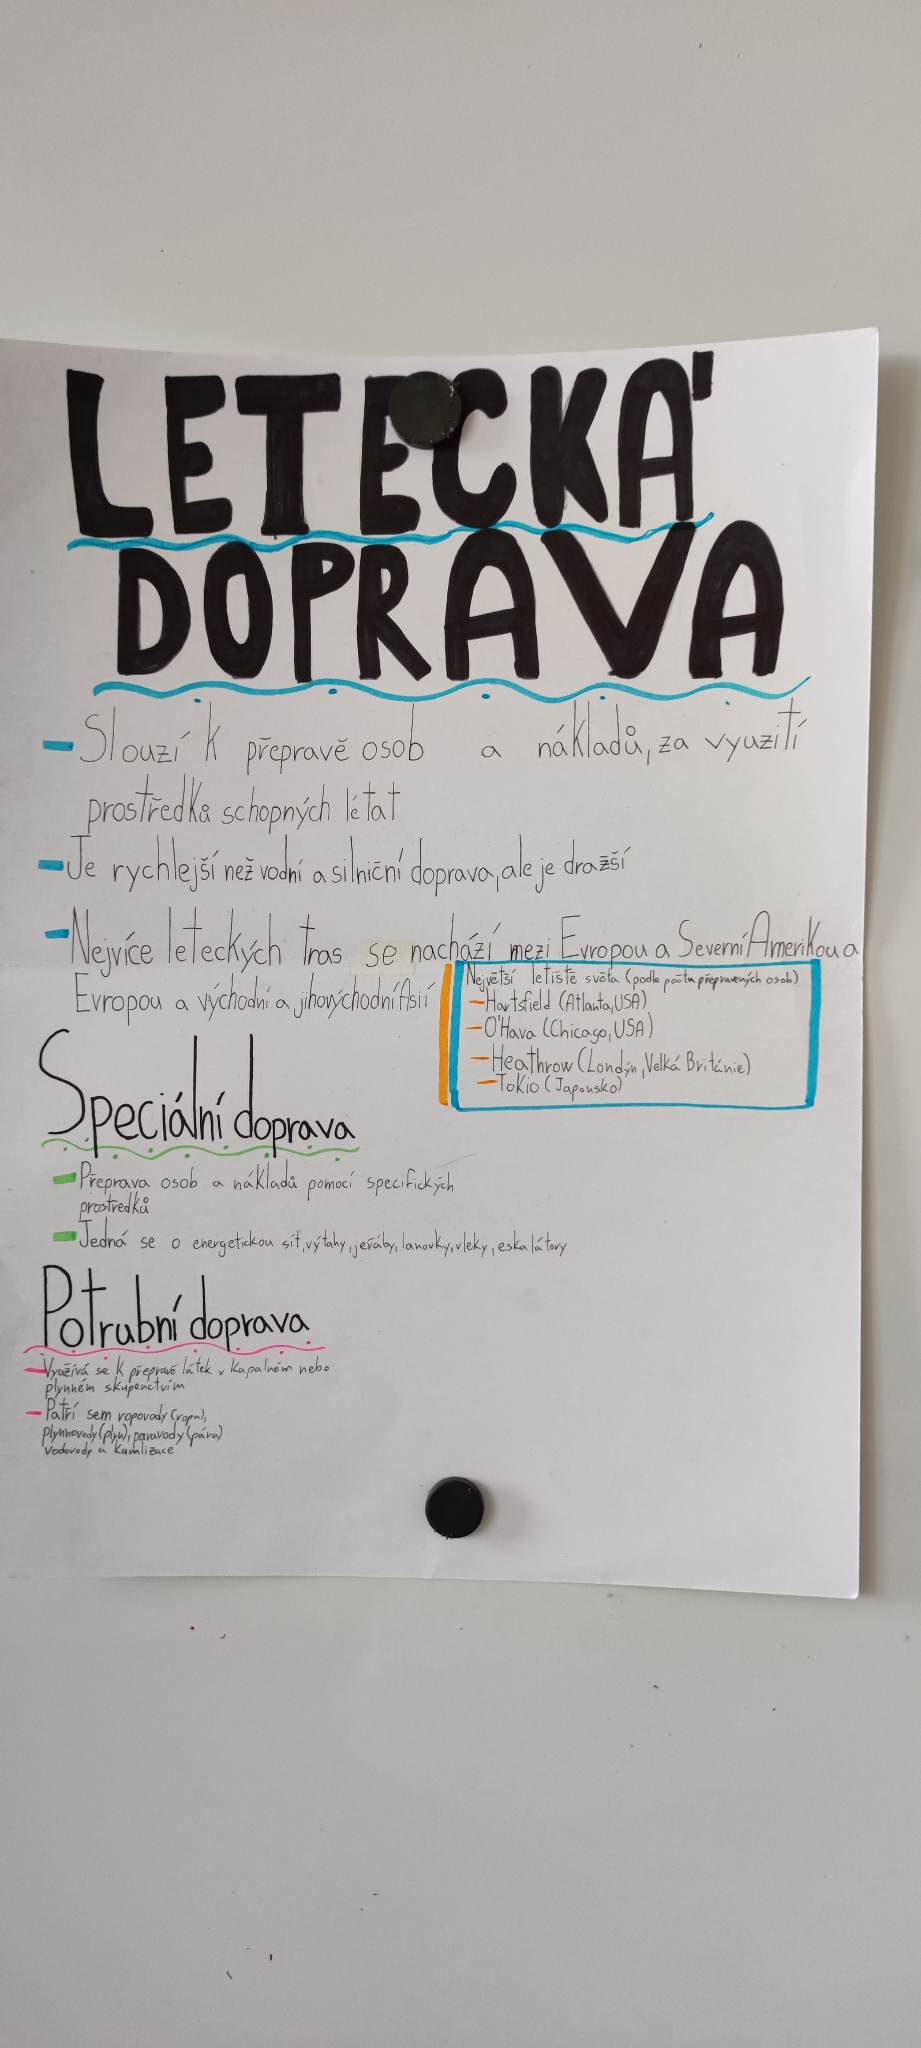 LETECKÁ
DOPRAVA
- Slouzí k přepravě osob a nákladů, za využití
prostředků schopných létat
- Je rychlejší než vodní a silniční doprava, ale je dražší
- Nejvíce leteckých tras se nachází mezi Evropou a Severní Amerikou a
Evropou a východní a jihovýchodní Asií
Největší letiště světa (podle počtu přepravených osob)
- Hartsfield (Atlanta, USA)
- O'Hava (Chicago, USA)
- Heathrow (Londýn, Velká Británie)
- Tokio (Japonsko)
Speciální doprava
- Přeprava osob a nákladů pomocí specifických
prostředků
- Jedná se o energetickou síť, výtahy, jeřáby, lanovky, vleky, eskalátory
Potrubní doprava
- Využívá se k přepravě látek v kapalném nebo
plynném skupenctvím
- Patří sem ropovody (ropa),
plynnovody (plyn), paravody (pára)
vodovody a kanalizace